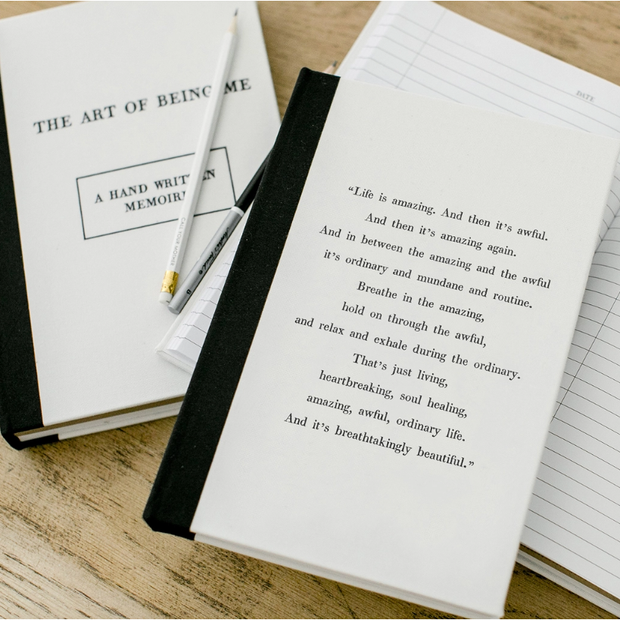 THE ART OF BEING ME
A HAND WRITTEN
MEMOIR
DATE
“Life is amazing. And then it’s awful.
And then it’s amazing again.
And in between the amazing and the awful
it’s ordinary and mundane and routine.
Breathe in the amazing,
hold on through the awful,
and relax and exhale during the ordinary.
That’s just living,
heartbreaking, soul healing,
amazing, awful, ordinary life.
And it’s breathtakingly beautiful.”